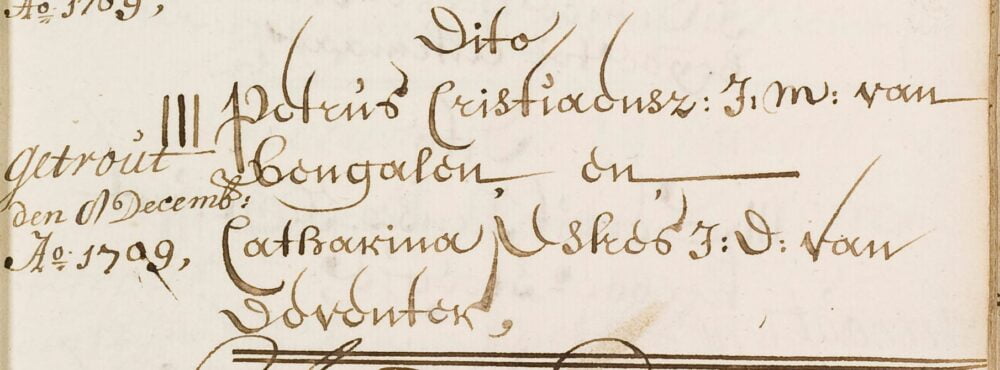 Ao. 1709,
Dito
Petrus Cristiaensz: J: m: van
Bengalen, en
Catharina J: D: van
Deventer,
getrout
den 8 Decemb:
Ao. 1709,